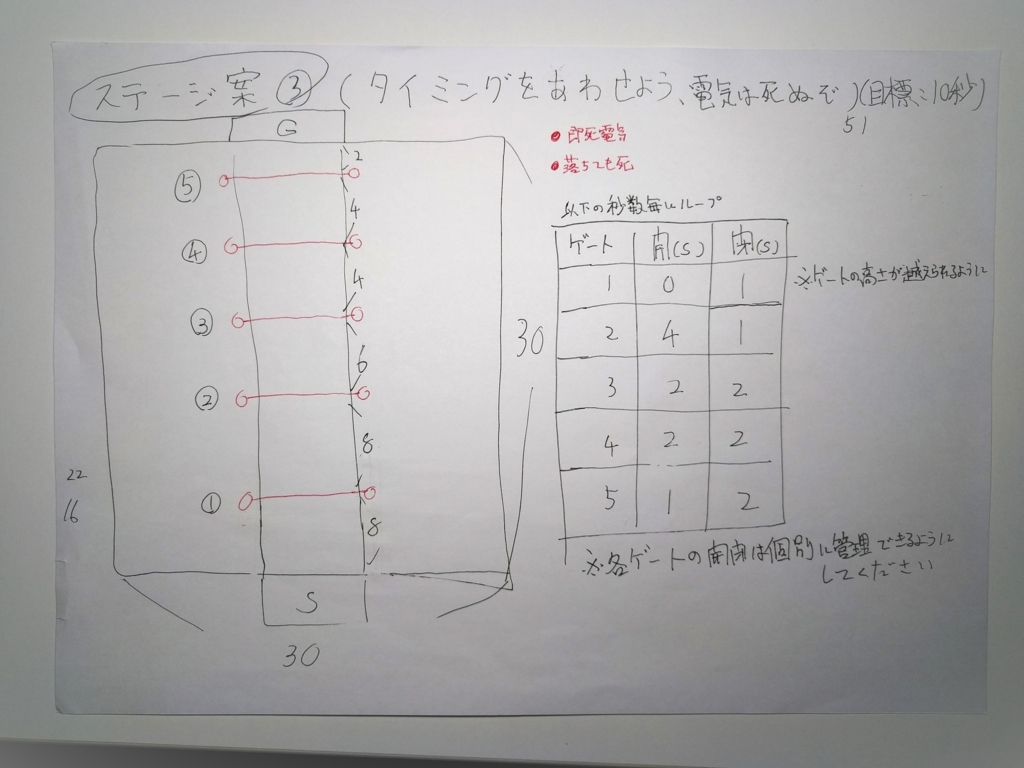 ステージ案③(タイミングをあわせよう、電気は死ぬぞ)(目標:10秒)
51
G
・即死電気
・落ちても死
2
⑤
4
④
4
③
6
②
8
①
8
S
30
30
22
16
以下の秒数毎にループ
ゲート 開(S) 閉(S)
1 0 1
2 4 1
3 2 2
4 2 2
5 1 2
※ゲートの高さが越えられるように
※各ゲートの開閉は個別に管理できるように
してください